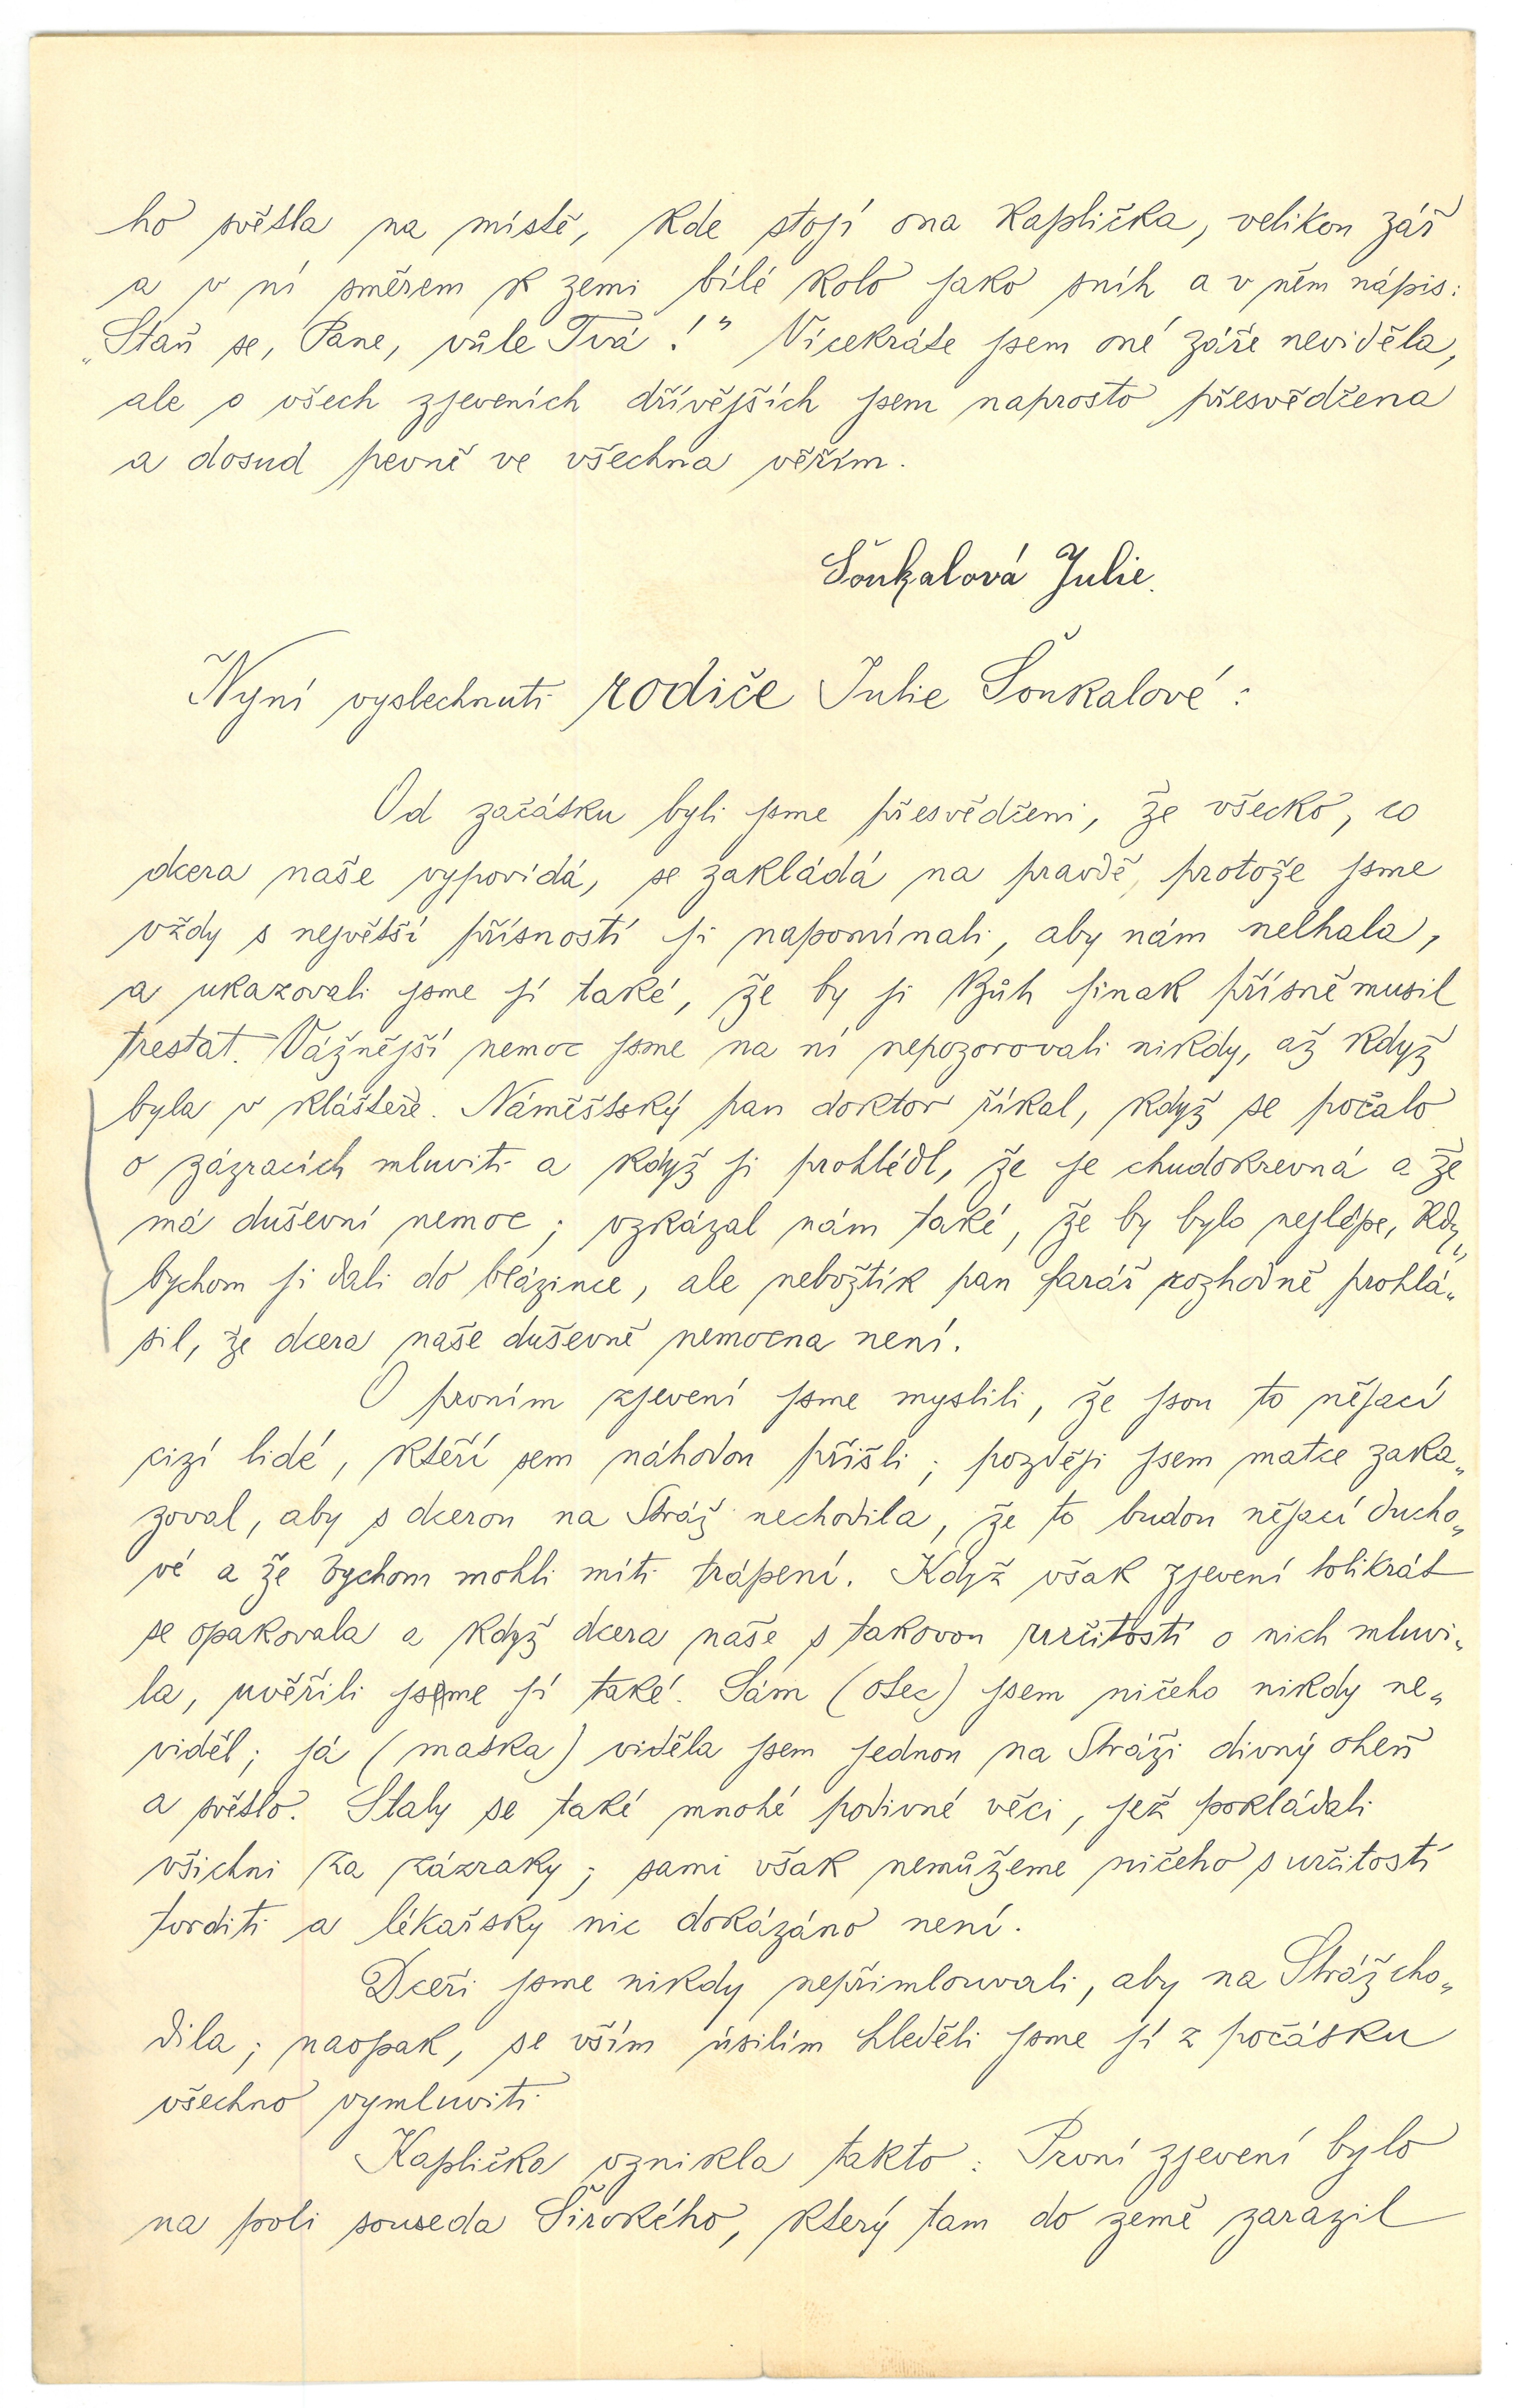 ho světla na místě, kde stojí ona kaplička, velikou zář
a v ní směrem k zemi bílé kolo jako sníh a v něm nápis:
„Staň se, Pane, vůle Tvá!“ Vícekráte jsem oné záře neviděla,
ale o všech zjeveních dřívějších jsem naprosto přesvědčena
a dosud pevně ve všechna věřím.
Šoukalová Julie.
Nyní vyslechnuti rodiče Julie Šoukalové:
Od začátku byli jsme přesvědčeni, že všecko, co
dcera naše vypovídá, se zakládá na pravdě, protože jsme
vždy s největší přísností ji napomínali, aby nám nelhala,
a ukazovali jsme jí také, že by ji Bůh jinak přísně musil
trestat. Vážnější nemoc jsme na ní nepozorovali nikdy, až když
byla v klášteře. Náměštský pan doktor říkal, když se počalo
o zázracích mluviti a když ji prohlédl, že je chudokrevná a že
má duševní nemoc; vzkázal nám také, že by bylo nejlépe, kdy„
bychom ji dali do blázince, ale nebožtík pan farář rozhodně prohlá„
sil, že dcera naše duševně nemocna není.
O prvním zjevení jsme myslili, že jsou to nějací
cizí lidé, kteří sem náhodou přišli; později jsem matce zaka„
zoval, aby s dcerou na Stráž nechodila, že to budou nějací ducho„
vé a že bychom mohli míti trápení. Když však zjevení tolikrát
se opakovala a když dcera naše s takovou určitostí o nich mluvi„
la, uvěřili jsme jí také. Sám (otec) jsem ničeho nikdy ne„
viděl; já (matka) viděla jsem jednou na Stráži divný oheň
a světlo. Staly se také mnohé podivné věci, jež pokládali
všichni za zázraky; sami však nemůžeme ničeho s určitostí
tvrditi a lékařsky nic dokázáno není.
Dceři jsme nikdy nepřimlouvali, aby na Stráž cho„
dila; naopak, se vším úsilím hleděli jsme jí z počátku
všechno vymluviti.
Kaplička vznikla takto: První zjevení bylo
na poli souseda Širokého, který tam do země zarazil